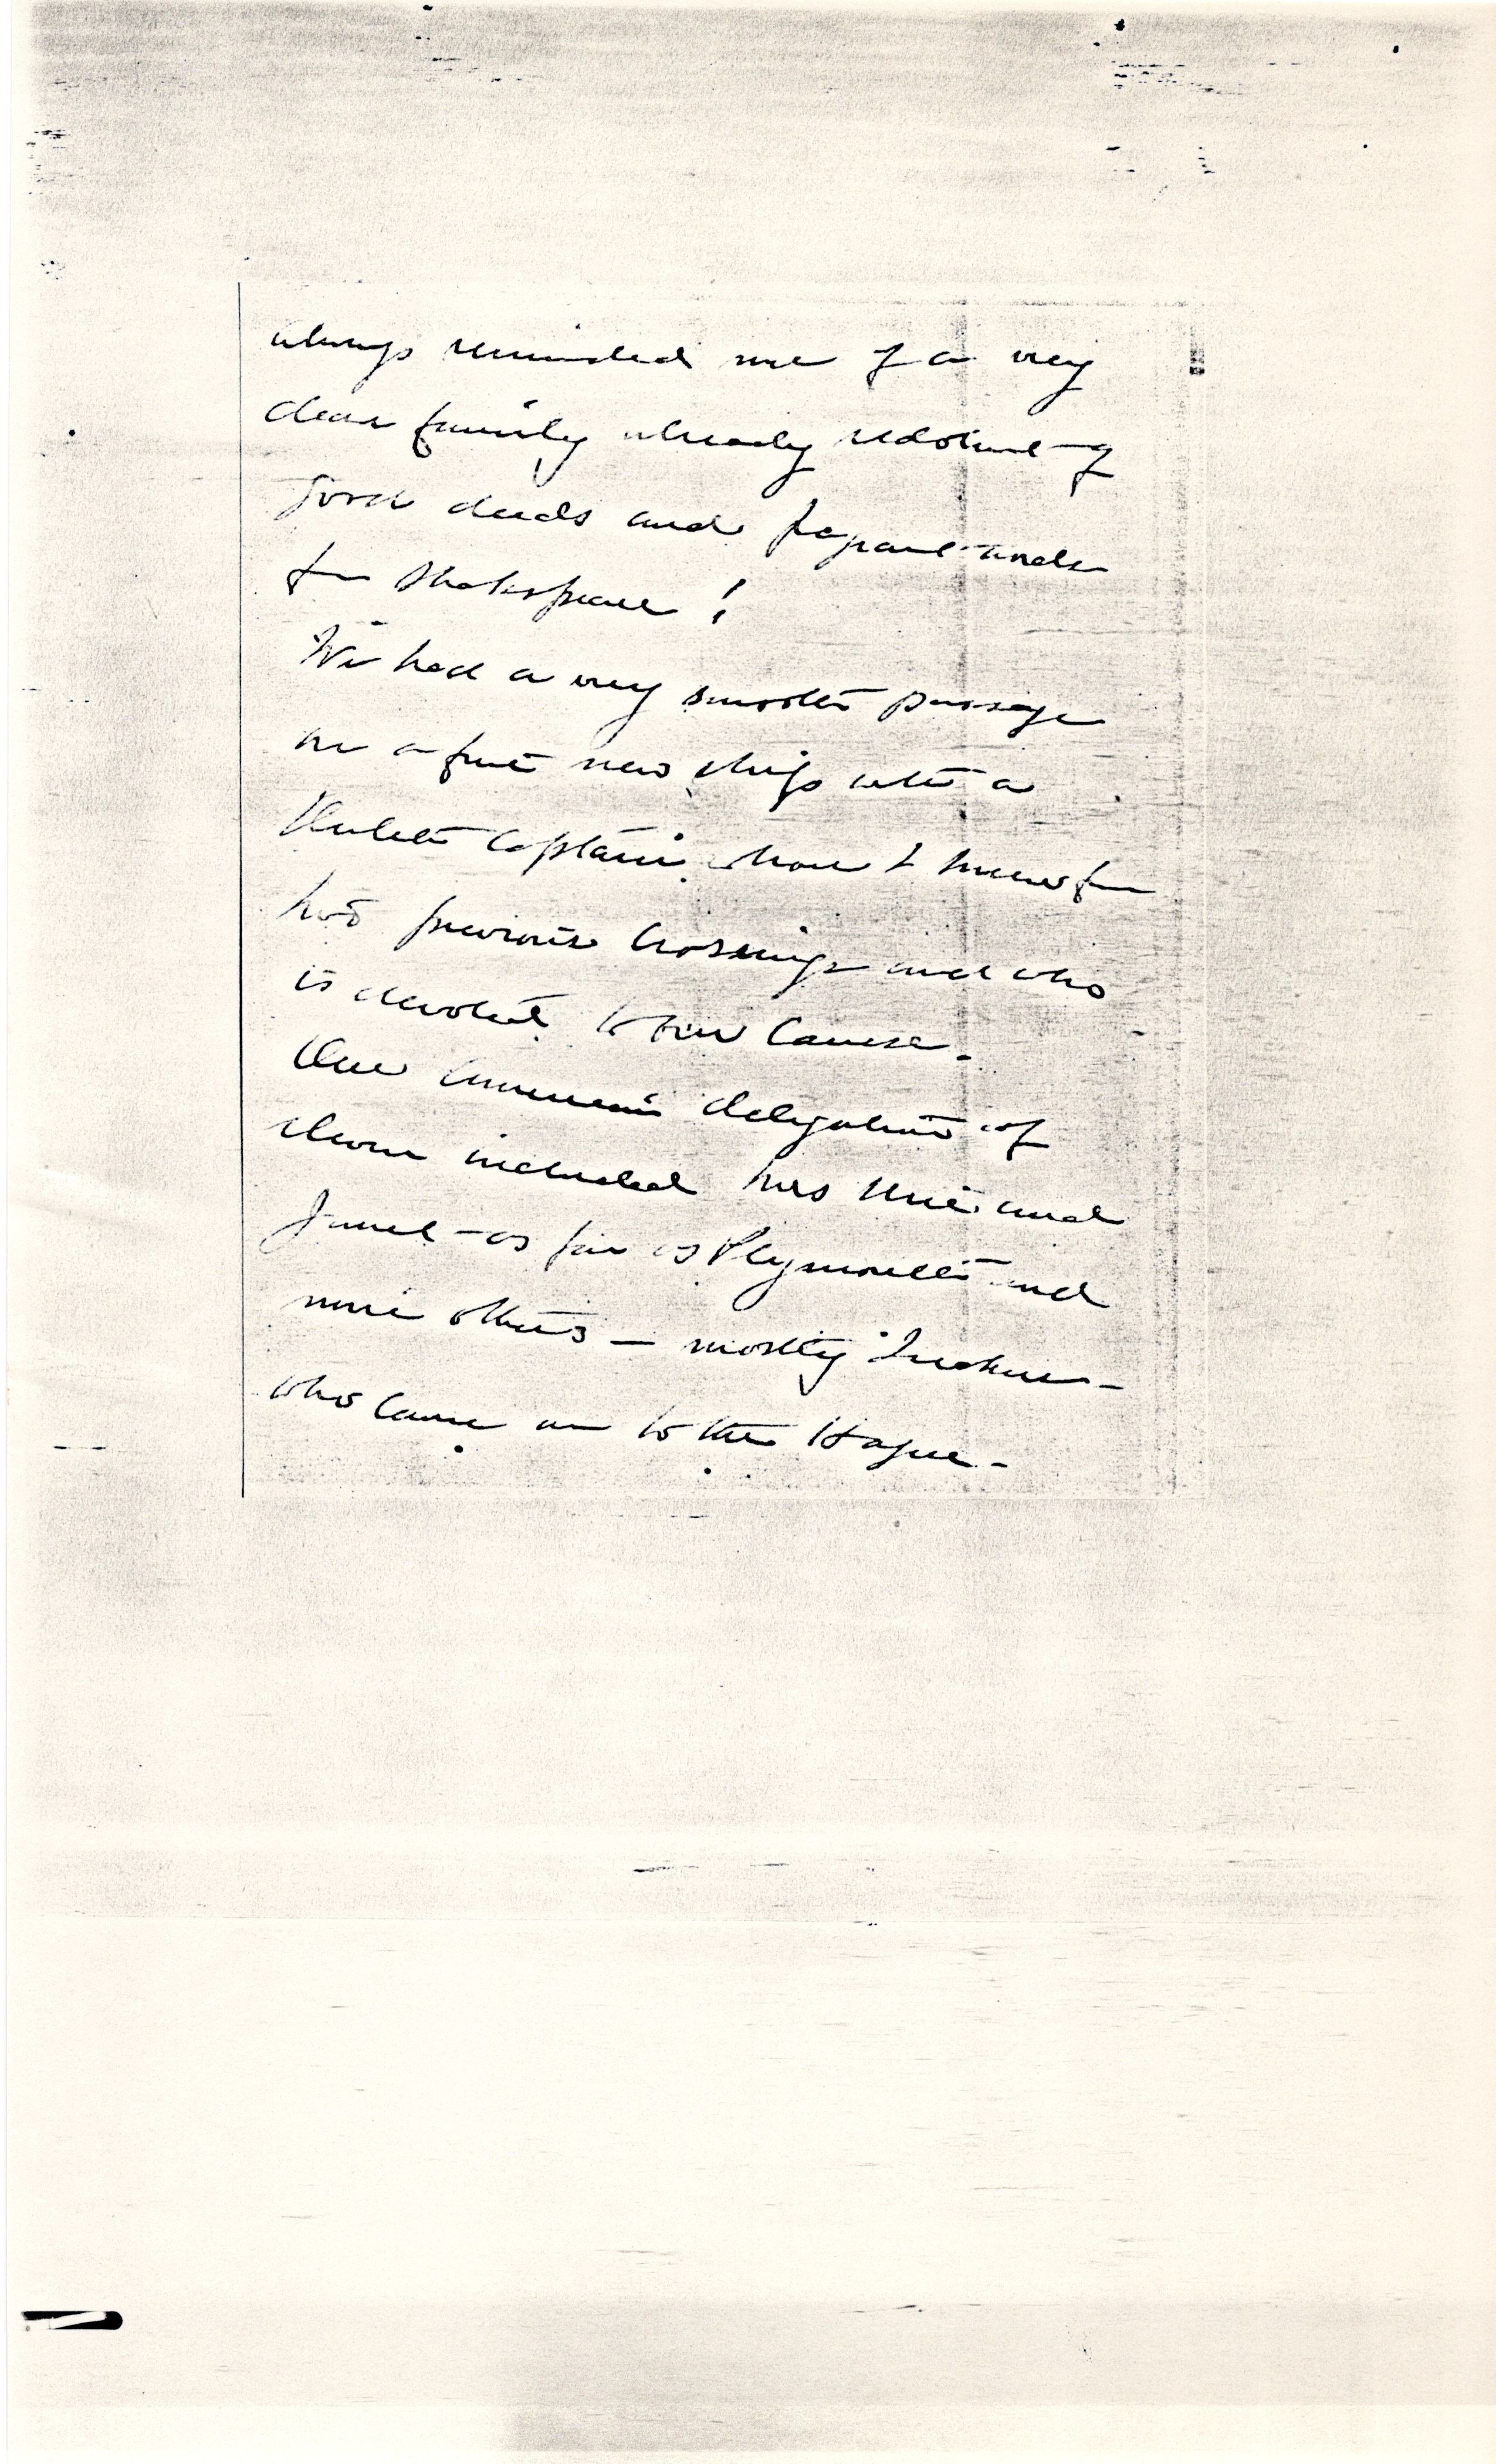 always reminded me of a very
dear family already redolent of
good deeds and
for Shakespeare!
We had a very smooth passage
on a fine new ship with a
Dutch Captain whom I knew from
two previous crossings and who
is devoted to our Cause.
Our American delegation of
eleven included Mrs and
as far as Plymouth and
nine others — mostly
who came on to the Hague -